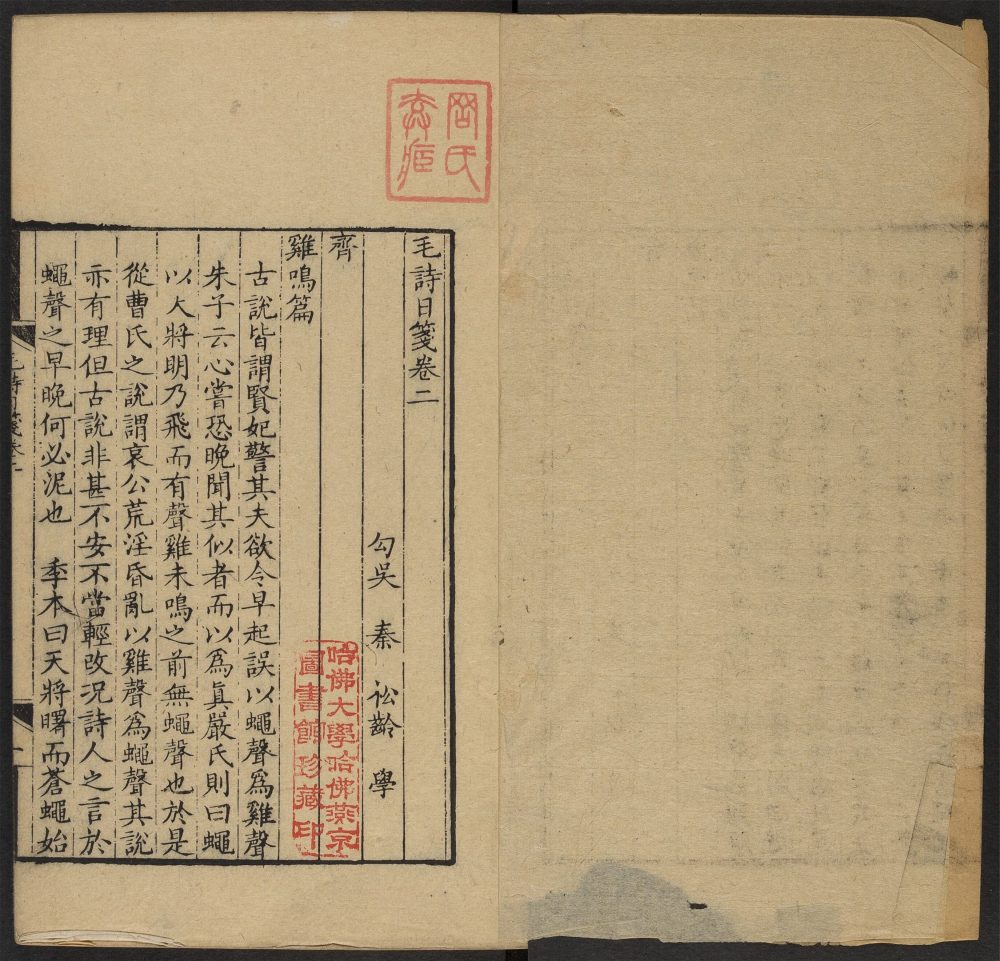 毛詩日箋卷二
勾吳 秦 松齡 學
齊
雞鳴篇
古說皆謂賢妃警其夫欲令早起誤以蠅聲為雞聲
朱子云心嘗恐晚聞其似者而以為真嚴氏則曰蠅
以天將明乃飛而有聲雞未鳴之前無蠅聲也於是
從曹氏之說謂哀公荒淫昏亂以雞聲為蠅聲其說
亦有理但古說非甚不安不當輕改况詩人之言於
蠅聲之早晚何必泥也 季本曰天將曙而蒼蠅始
毛詩日箋卷二
哈佛大學哈佛燕京
圖書館珍藏印